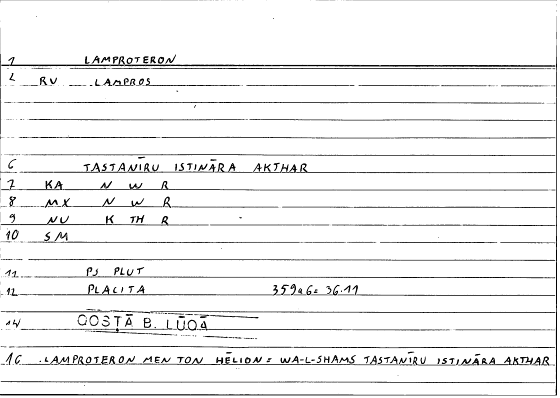 1 LAMPROTERON
2 RV LAMPROS
6 TASTANĪRU ISTINĀRA AKTHAR
7 KA N W R
8 MX N W R
9 NU K TH R
10 SM
11 PS PLUT
12 PLACITA 359a6= 36.11
14 QOSṬĀ B. LŪQĀ
16 .LAMPROTERON MEN TON HĒLION = WA-L-SHAMS TASTANĪRU ISTINĀRA AKTHAR